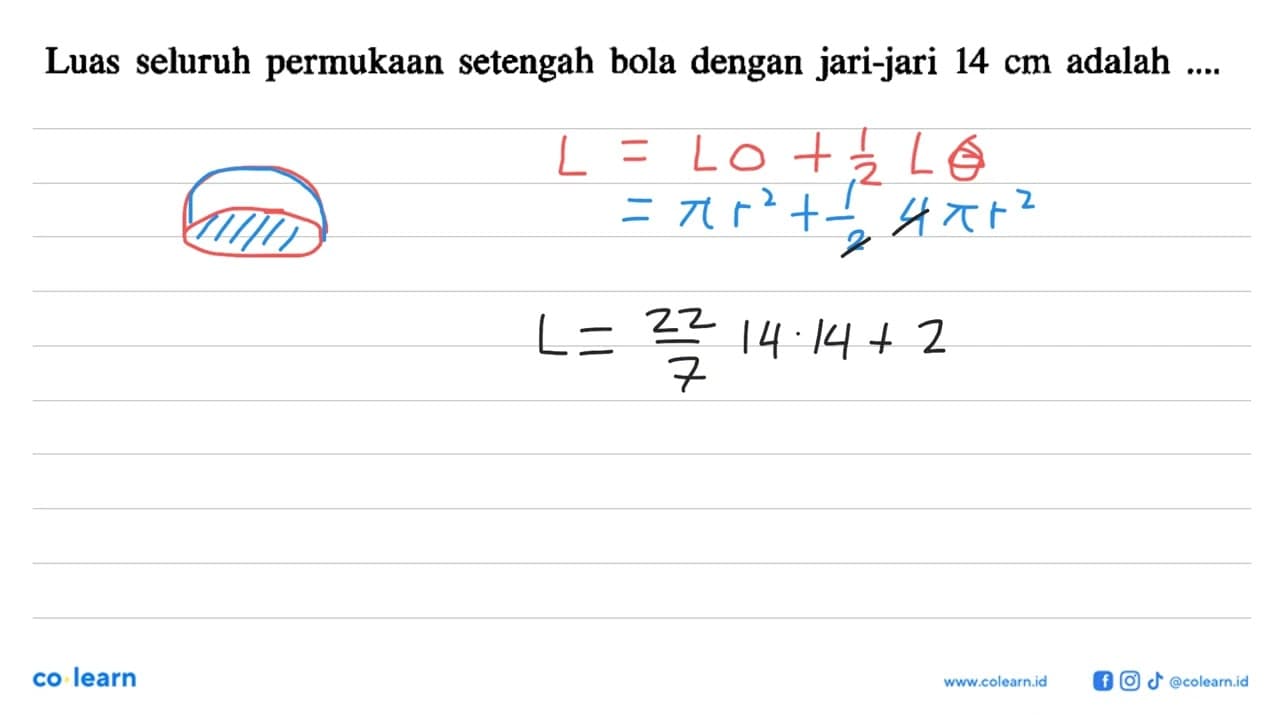 Luas seluruh permukaan setengah bola dengan jari-jari 14 cm adalah ....
L = L○ + 1/2 L
= πr² + 1/2 4πr²
L = 22/7 14·14 + 2
co·learn
www.colearn.id
@colearn.id